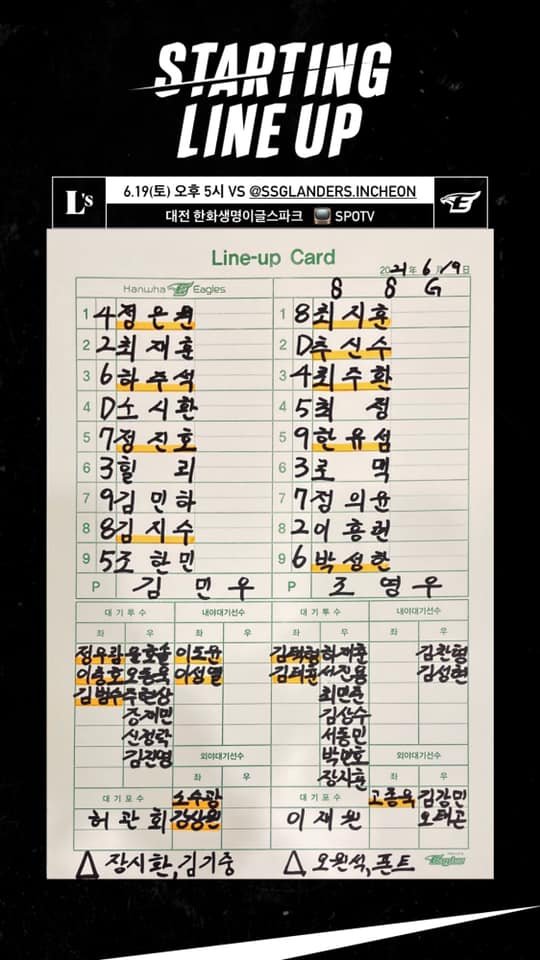 STARTING
LINE UP
L's
6.19(토) 오후 5시 VS @SSGLANDERS.INCHEON
대전 한화생명이글스파크 SPOTV
Line-up Card
2021年 6月 19日
Hanwha Eagles S S G
1 4 정은원 1 8 최지훈
2 2 최재훈 2 D 추신수
3 6 하주석 3 4 최주환
4 D 노시환 4 5 최정
5 7 정진호 5 9 한유섬
6 3 힐리 6 3 로맥
7 9 김민하 7 7 정의윤
8 8 김지수 8 2 이흥련
9 5 조한민 9 6 박성한
P 김민우 P 조영우
대기투수 내야대기선수 대기투수 내야대기선수
좌 우 좌 우 좌 우 좌 우
정우람 윤호솔 이도윤 김택형 하재훈 김찬형
이충호 오동욱 이성열 김태훈 서진용 김성현
김범수 주현상 최민준
강재민 김상수
신정락 서동민
김진영 외야대기선수 박민호 외야대기선수
좌 우 장지훈 좌 우
대기포수 노수광 대기포수 고종욱 김강민
허관회 이재원 오태곤
△ 장시환, 김기중 △ 오원석, 폰트
Eagles